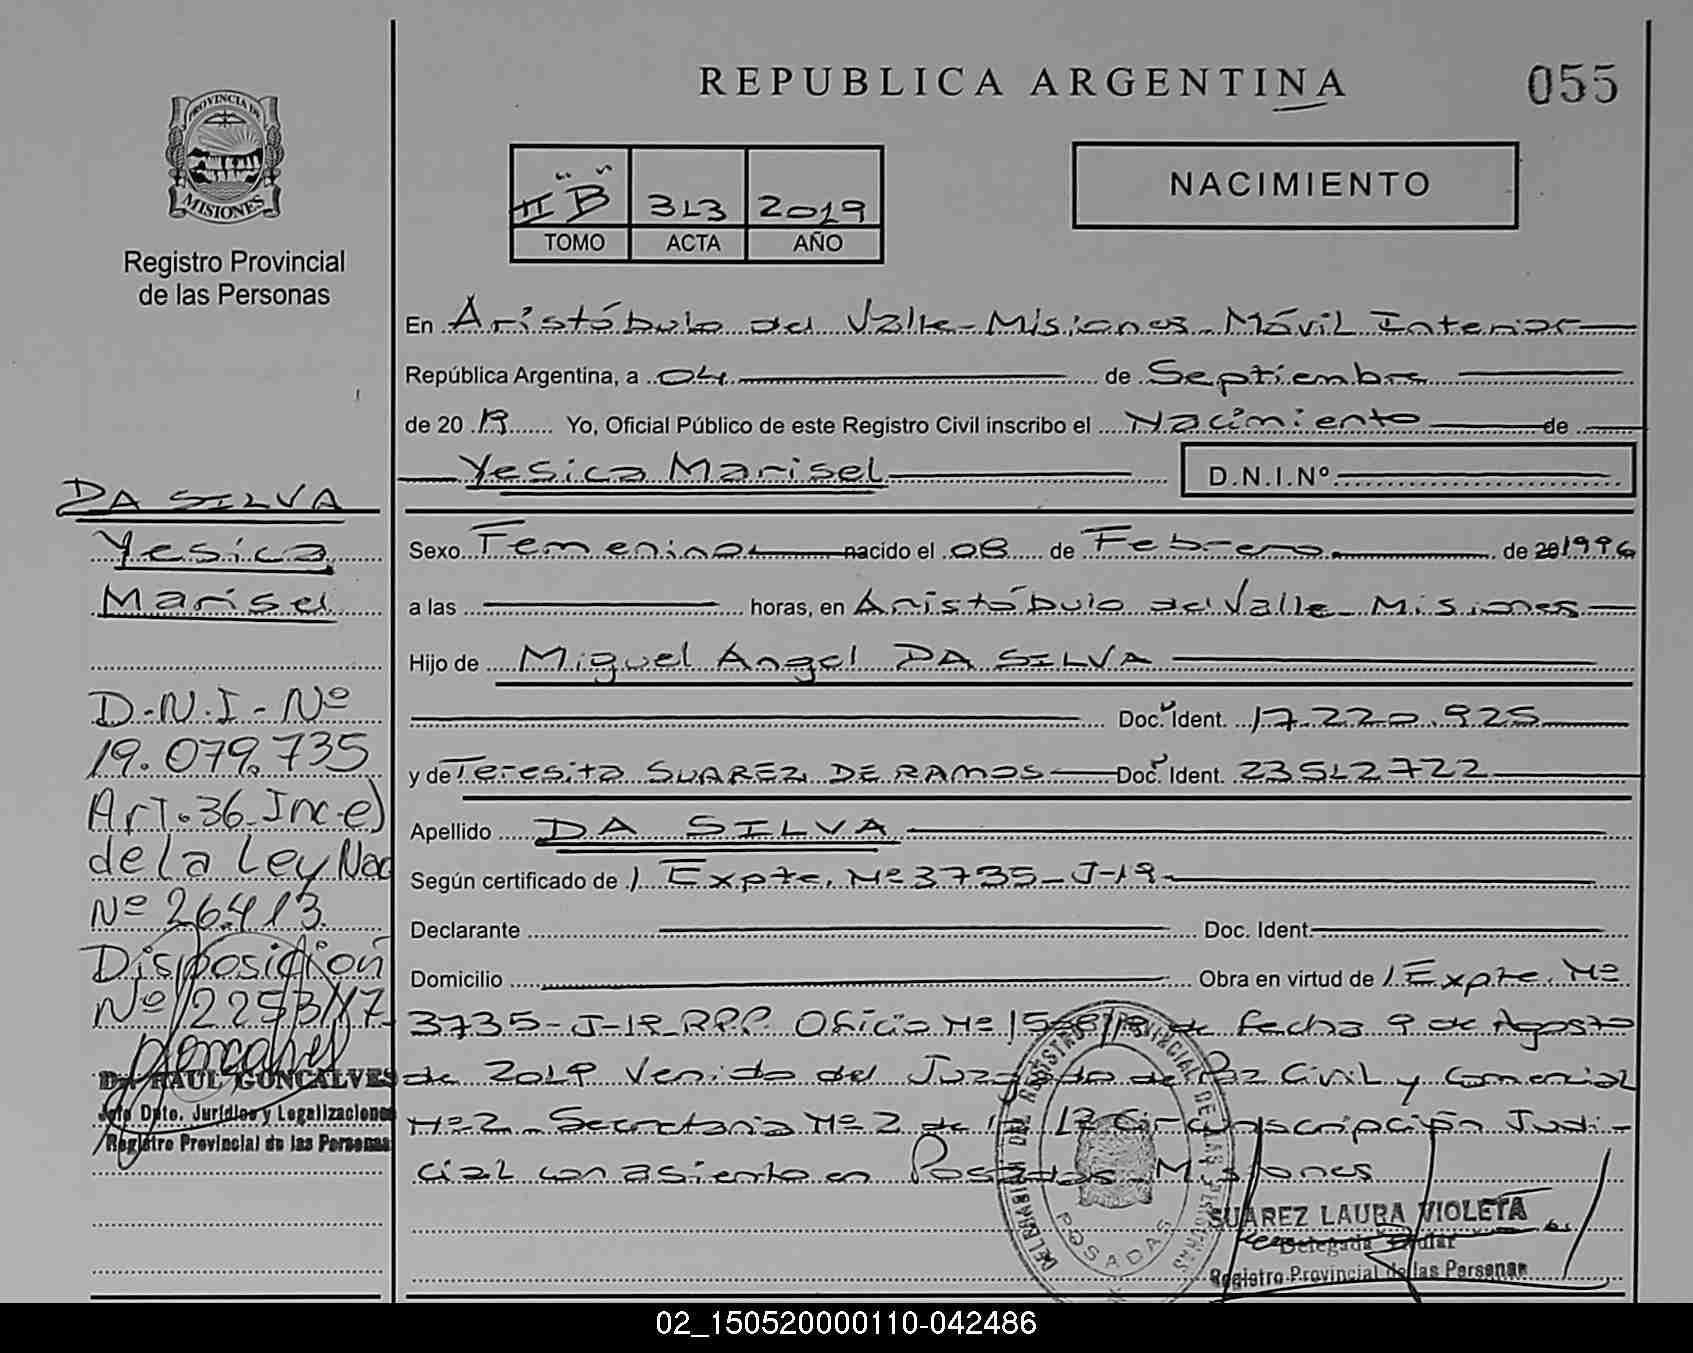 REPUBLICA ARGENTINA
055
PROVINCIA DE
MISIONES
Registro Provincial
de las Personas
II "B" 313 2019
TOMO ACTA AÑO
NACIMIENTO
En Aristóbulo del Valle - Misiones - Móvil Interior
República Argentina, a 04 de Septiembre
de 20 19 Yo, Oficial Público de este Registro Civil inscribo el Nacimiento de
Yesica Marisel D.N.I.Nº
Sexo Femenino nacido el 08 de Febrero de 1996
a las horas, en Aristóbulo del Valle - Misiones
Hijo de Miguel Angel DA SILVA
Doc. Ident. 17.220.925
y de Teresita SUAREZ DE RAMOS Doc. Ident. 23512722
Apellido DA SILVA
Según certificado de / Expte. Nº 3735-J-19
Declarante Doc. Ident.
Domicilio Obra en virtud de / Expte. Nº
3735-J-19 RPP Oficio Nº de fecha 9 de Agosto
de 2019 Venido del Juzgado de Paz Civil y Comercial
Nº 2 - Secretaria Nº 2 de la Circunscripción Judi-
cial con asiento en Posadas - Misiones
DA SILVA
Yesica
Marisel
D.N.I - Nº
19.079.735
Art. 36 Inc. e)
de la Ley Nac
Nº 26.413.
Disposición
Nº 2253/17
Dr. RAUL GONCALVES
Jefe Dpto. Jurídico y Legalizaciones
Registro Provincial de las Personas
DELEGACION DEL REGISTRO PROVINCIAL DE LAS PERSONAS
POSADAS
SUAREZ LAURA VIOLETA
Delegada Titular
Registro Provincial de las Personas
02_150520000110-042486